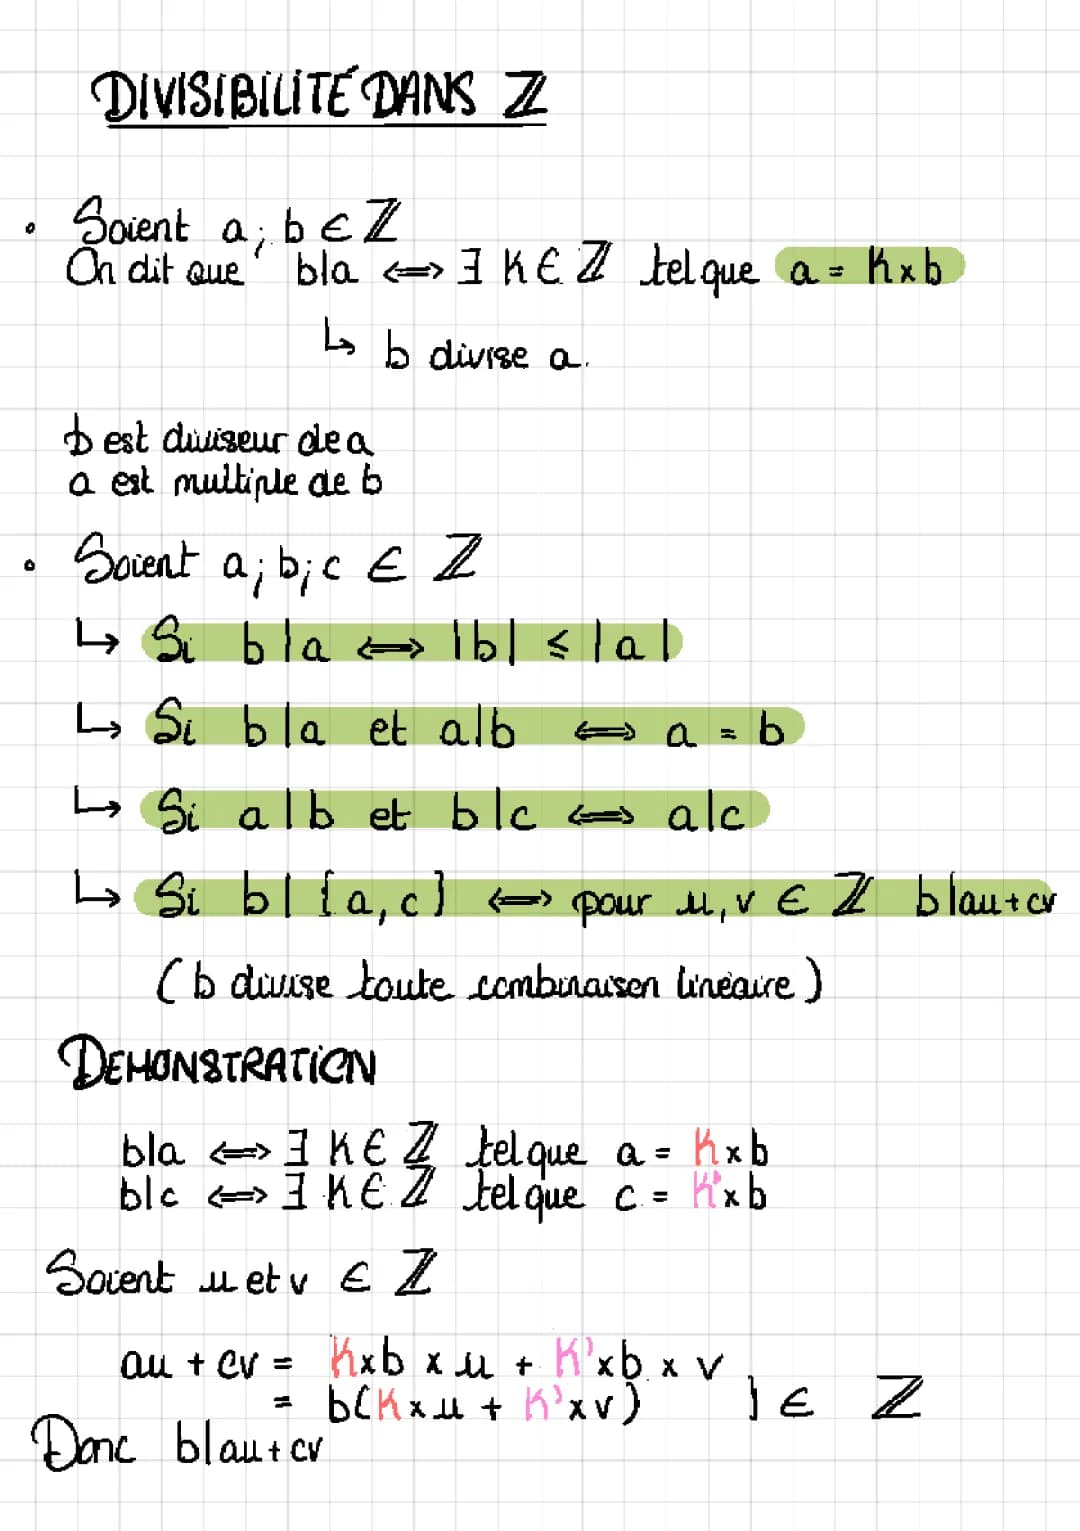 DIVISIBILITÉ DANS ℤ
• Soient a; b ∈ ℤ
On dit que b|a ⟺ ∃ K ∈ ℤ tel que a = K×b
↳ b divise a.
b est diviseur de a
a est multiple de b
• Soient a; b; c ∈ ℤ
↳ Si b|a ⟺ |b| ≤ |a|
↳ Si b|a et a|b ⟺ a = b
↳ Si a|b et b|c ⟺ a|c
↳ Si b|{a,c} ⟺ pour u,v ∈ ℤ b|au+cv
(b divise toute combinaison linéaire)
DEMONSTRATION
b|a ⟺ ∃ K ∈ ℤ tel que a = K×b
b|c ⟺ ∃ K ∈ ℤ tel que c = K'×b
Soient u et v ∈ ℤ
au + cv = K×b × u + K'×b × v
= b(K×u + K'×v) } ∈ ℤ
Donc b|au+cv